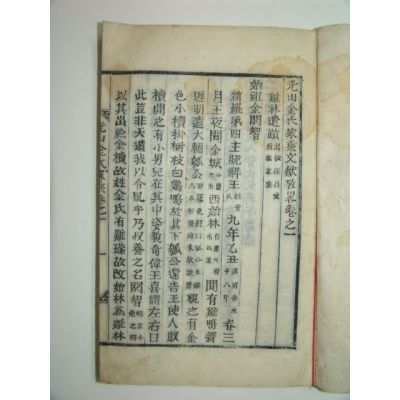 光山金氏家乘文獻攷畧卷之一
雞林遺蹟
始祖金閼智
新羅第四主脫解王昔氏九年乙丑漢明帝永平八年春三
月王夜聞金城西始林間有雞鳴聲
遲明遣大輔瓠公視之有金
色小櫝掛樹枝白鷄鳴於其下瓠公還告王使人取
櫝開之有小男兒在其中姿貌奇偉王喜謂左右曰
此豈非天遺我以令胤乎乃收養之名閼智
以其出於金櫝故姓金氏有雞瑞故改始林爲雞林
光山金氏家乘卷之一
一